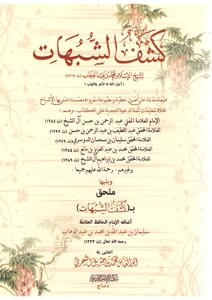 كشف الشبهات
لشيخ الإسلام محمد بن عبد الوهاب (ت ١٢٠٦)
أجزل الله له الأجر والثواب
الإمام العلامة المفتي عبد الرحمن بن حسن آل الشيخ (ت ١٢٨٥)
العلامة المحقق عبد اللطيف بن عبد الرحمن بن حسن (ت ١٢٩٣)
العلامة المحقق سليمان بن سحمان الدوسري (ت ١٣٤٩)
العلامة المحقق محمد بن عبد العزيز بن مانع (ت ١٣٨٥)
العلامة المحقق محمد بن إبراهيم آل الشيخ (ت ١٣٨٩)
وغيرهم رحمة الله عليهم جميعا
ويليها
ملحق
بـ(كشف الشبهات)
أضافه الإمام الحافظ العلامة
سليمان بن عبد الله بن محمد بن عبد الوهاب
رحمه الله تعالى (ت ١٢٣٣)
اعتنى به
دماج